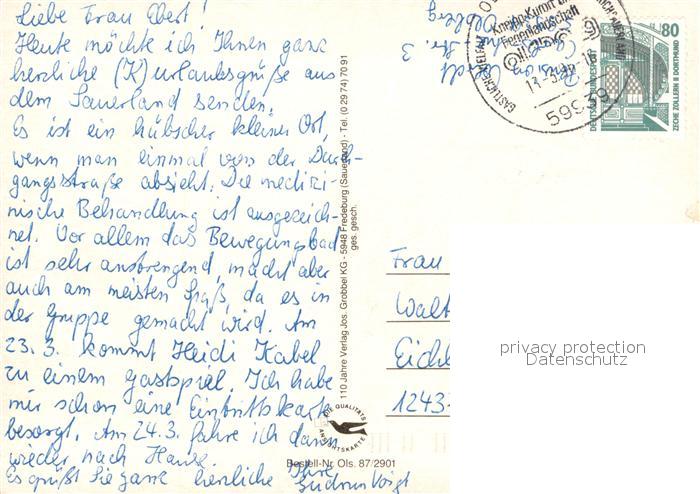 Liebe Frau Ebert!
Heute möchte ich Ihnen ganz
herzliche (K)urlaubsgrüße aus
dem Sauerland senden.
Es ist ein hübscher kleiner Ort,
wenn man einmal von der Durch-
gangsstraße absieht. Die medizi-
nische Behandlung ist ausgezeich-
net. Vor allem das Bewegungsbad
ist sehr anstrengend, macht aber
auch am meisten Spaß, da es in
der Gruppe gemacht wird. Am
23.3. kommt Heidi Kabel
zu einem Gastspiel. Ich habe
mir schon eine Eintrittskarte
besorgt. Am 24.3. fahre ich dann
wieder nach Hause.
Es grüßt Sie ganz herzliche Ihre
Gudrun Voigt
110 Jahre Verlag Jos. Grobbel KG - 5948 Fredeburg (Sauerland) - Tel. (0 29 74) 70 91
ges. gesch.
DIE QUALITÄTS
ANSICHTSKARTE
Bestell-Nr. Ols. 87/2901
Pension
Str. 3
Olsberg
Kneipp-Kurort
Ferienlandschaft
59939
80
DEUTSCHE BUNDESPOST
ZECHE ZOLLERN II DORTMUND
Frau
Walt
Eich
1243
privacy protection
Datenschutz